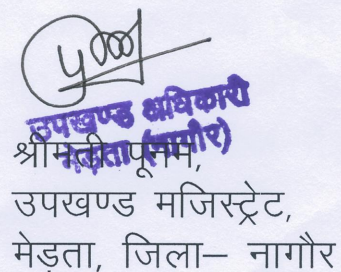 उपखण्ड अधिकारी
मेड़ता (नागौर)
श्रीमती पूनम,
उपखण्ड मजिस्ट्रेट,
मेड़ता, जिला– नागौर